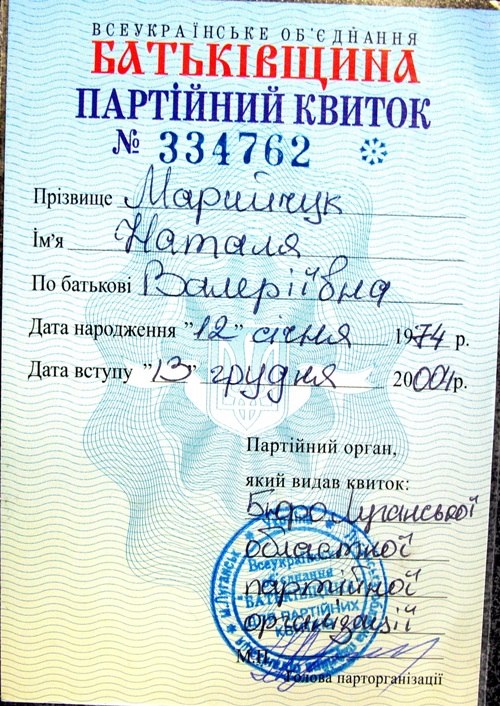 ВСЕУКРАЇНСЬКЕ ОБ'ЄДНАННЯ
БАТЬКІВЩИНА
ПАРТІЙНИЙ КВИТОК
№ 334762
Прізвище Марийчук
Ім'я Наталя
По батькові Валеріївна
Дата народження "12" січня 1974 р.
Дата вступу "13" грудня 2004р.
Партійний орган,
який видав квиток:
Бюро Луганської
обласної
партійної
організації
М.П.
Голова парторганізації
Всеукраїнське
об'єднання
"БАТЬКІВЩИНА"
ДЛЯ ПАРТІЙНИХ
КВИТКІВ